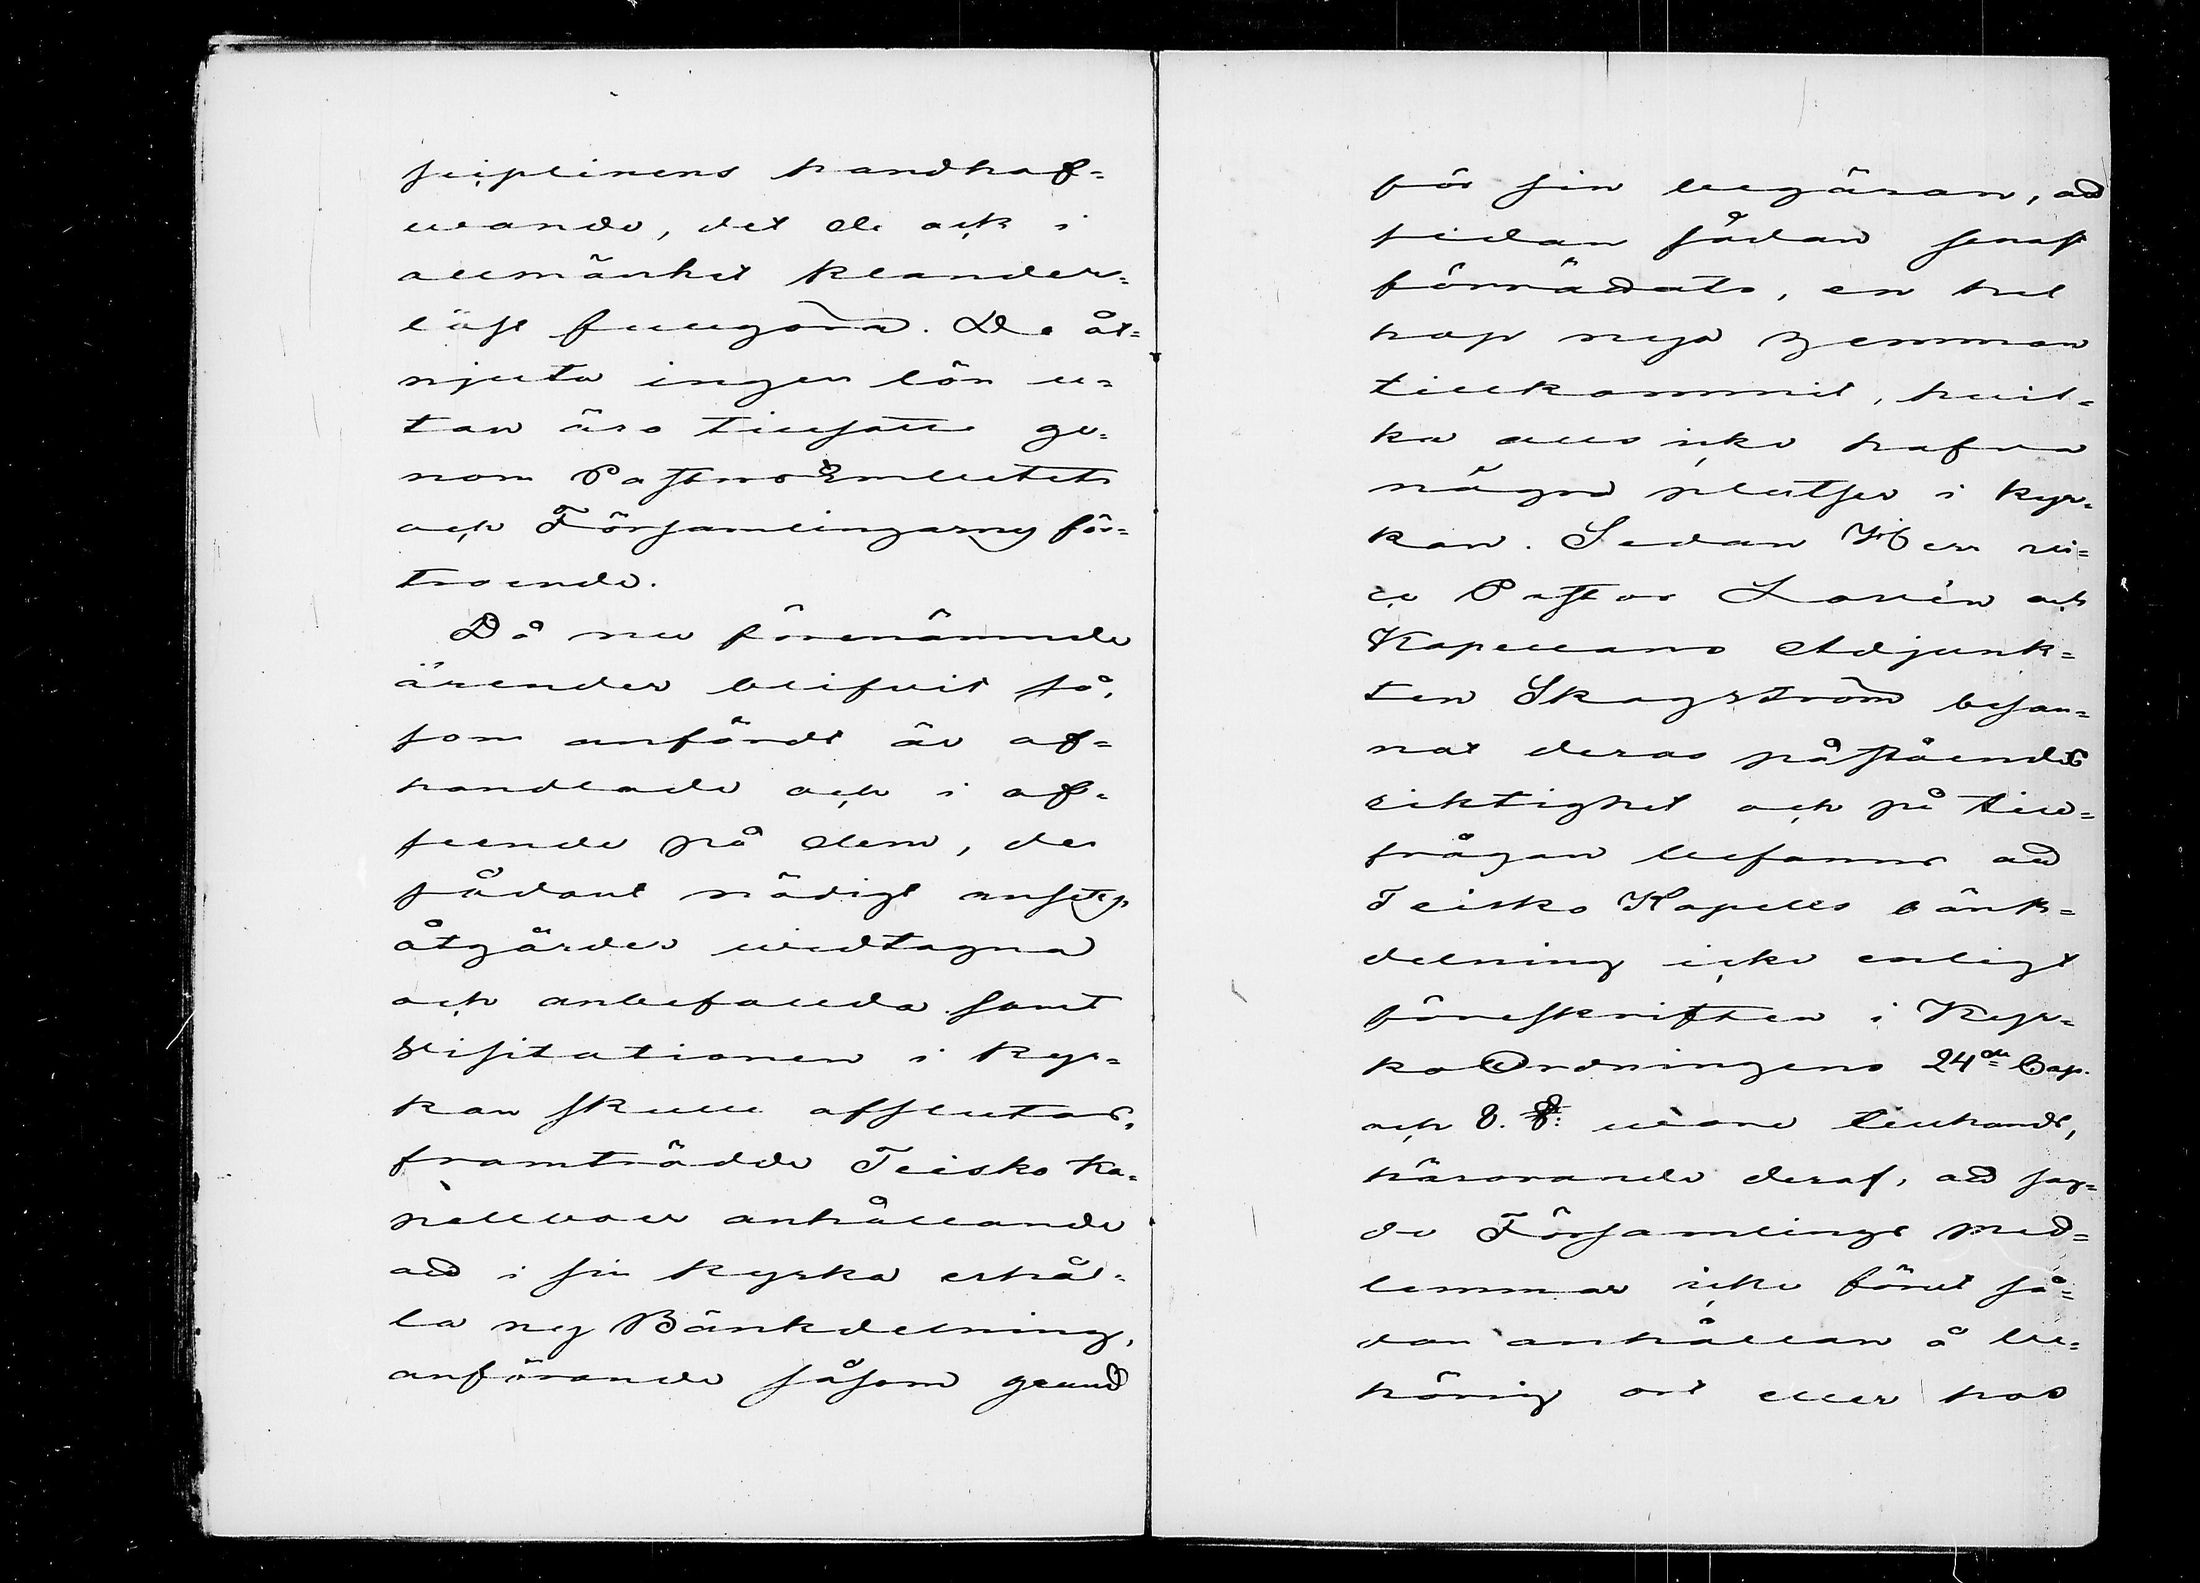 sciplinens handhaf=
wande, det de ock i
allmänhet klander=
löst fullgöra. De åt=
njuta ingen lön u=
tan äro tillsatte ge=
nom PastorsEmbetets
och Församlingarnes för=
troende.
Då nu förenämnde
ärender blifvit så,
som anfördt är af=
handlade och i af=
seende på dem, der
sådant nödigt ansetts
åtgärder widtagna
och anbefallda samt
Visitationen i kyr=
kan skulle afslutas,
framträdde Teisko Ka=
pellboer anhållande
att i sin kyrka erhål=
la ny Bänkdelning,
anförande såsom grund
för sin begäran, att
sedan sådan senast
förrättats, en hel
hop nya hemman
tillkommit, hvil=
ka alls icke hafva
några platser i kyr=
kan. Sedan Herr vi=
ce Pastor Lovén och
Kapellans Adjunk=
ten Skogström besan=
nat deras påståendes
riktighet och på till=
frågan befanns att
Teisko Kapells bänk=
delning icke enligt
föreskriften i Kyr=
koOrdningens 24de Cap.
och 8. §. wore tillhandt,
härrörande deraf, att sag=
de Församlings med=
lemmar icke förut så=
dan anhållan å be=
hörig ort eller hos